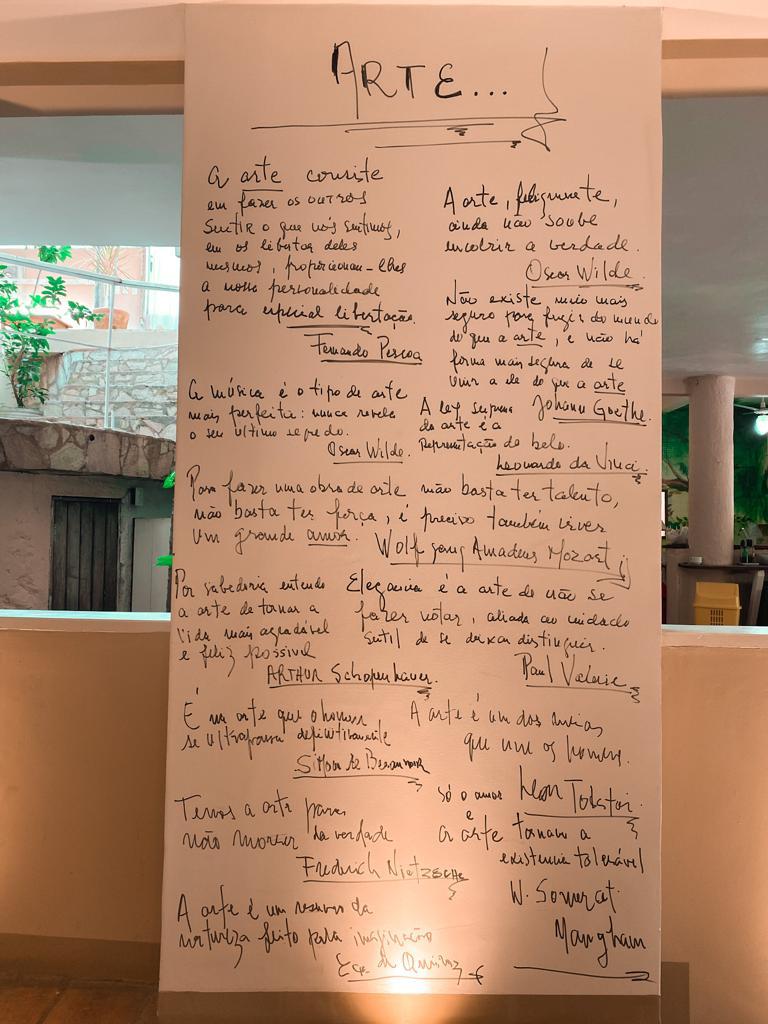 ARTE...
A arte consiste
em fazer os outros
sentir o que nós sentimos,
em os libertar deles
mesmos, proporcionan-lhes
a nossa personalidade
para especial libertação.
Fernando Pessoa
A arte, felizmente,
ainda não soube
encobrir a verdade.
Oscar Wilde.
Não existe meio mais
seguro para fugir do mundo
do que a arte, e não há
forma mais segura de se
unir a ele do que a arte
Johann Goethe.
A música é o tipo de arte
mais perfeita: nunca revela
o seu último segredo.
Oscar Wilde.
A ley suprema
da arte é a
Representação do belo.
Leonardo da Vinci.
Para fazer uma obra de arte não basta ter talento,
não basta ter força, é preciso também viver
um grande amor.
Wolfgang Amadeus Mozart
Por sabedoria entendo
a arte de tornar a
vida mais agradável
e feliz possivel
ARTHUR Schopenhauer.
Elegancia é a arte de não se
fazer notar, aliada ao cuidado
sutil de se deixar distinguir.
Paul Valerie
É na arte que o homem
se ultrapassa definitivamente
Simon de Beauvoir
A arte é um dos meios
que une os homens.
Leon Tolstoi.
Temos a arte para
não morrer da verdade
Fredrich Nietzsche
Só o amor
e
a arte tornam a
existencia tolerável
W. Somerset
Mangham
A arte é um resumo da
natureza feito pela imaginação
Eça de Queiroz